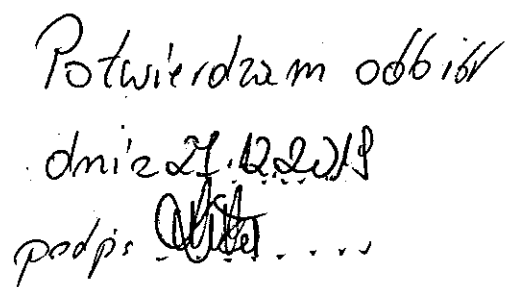 Potwierdzam odbiór
dnia 27.12.2019
podpis .........